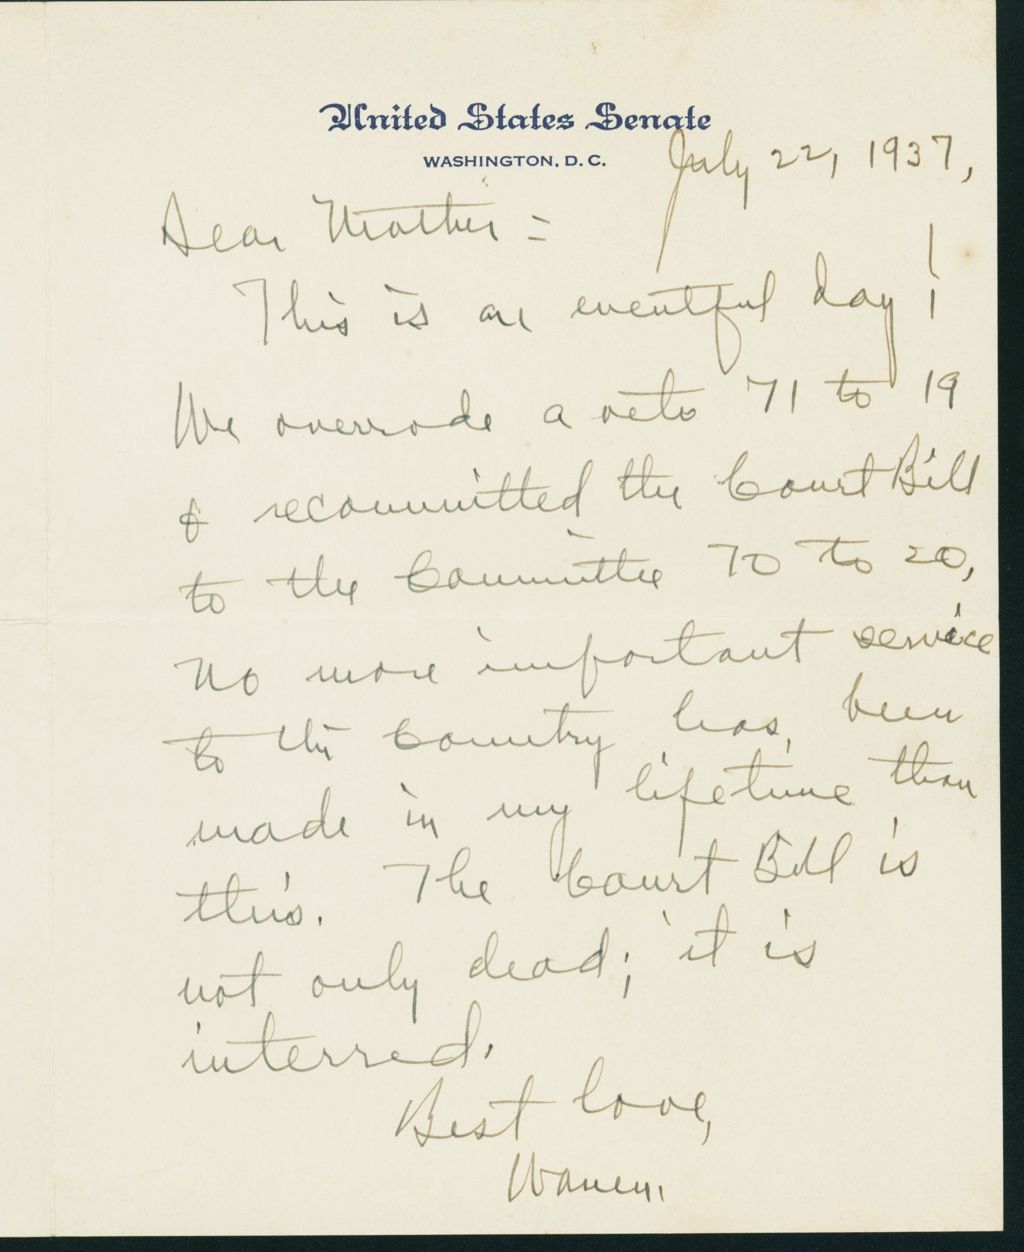 United States Senate
WASHINGTON, D. C.
July 22, 1937,
Dear Mother =
This is an eventful day!
We overrode a veto 71 to 19
& recommitted the Court Bill
to the Committee 70 to 20,
No more important service
to the Country has been
made in my lifetime than
this. The Court Bill is
not only dead; it is
interred.
Best love,
Warren.